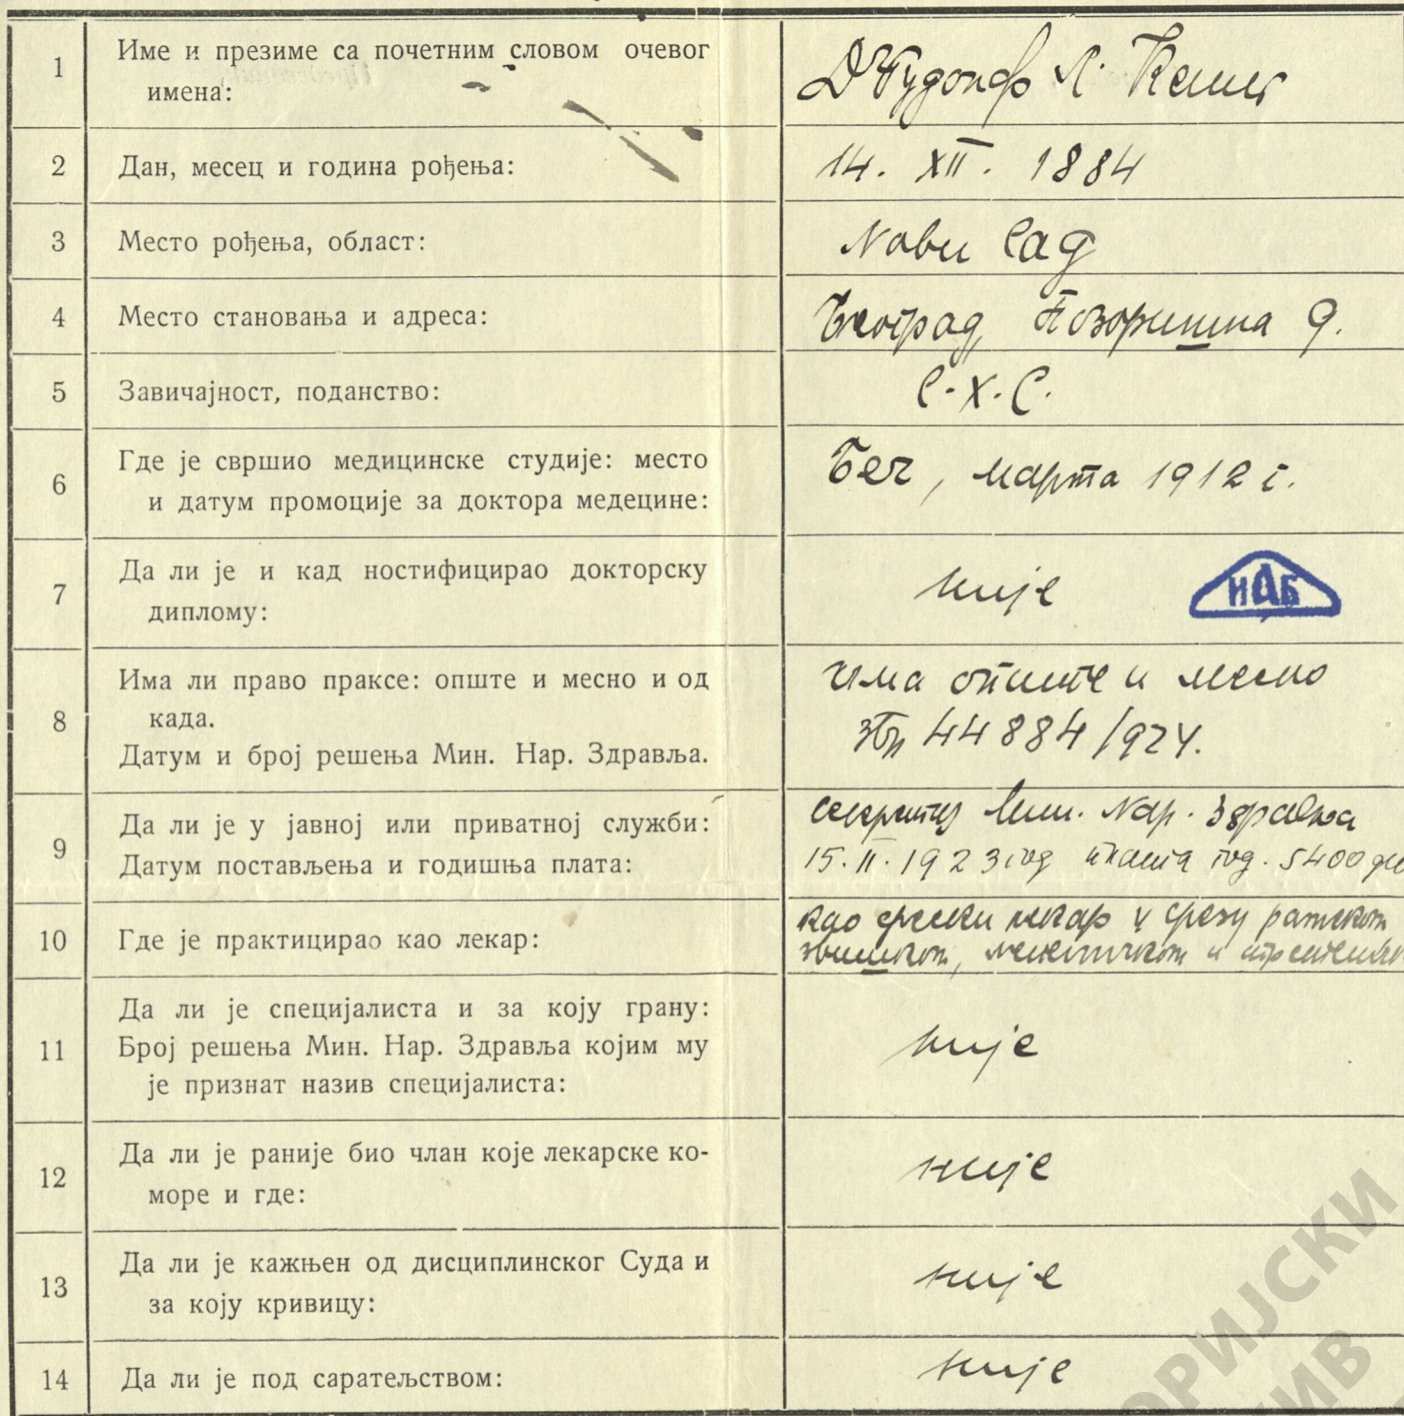 1 Име и презиме са почетним словом очевог
имена:
Др Рудолф Л.
2 Дан, месец и година рођења:
14. XII. 1884
3 Место рођења, област:
Нови Сад
4 Место становања и адреса:
Београд, Позоришна 9.
5 Завичајност, поданство:
С.Х.С.
6 Где је свршио медицинске студије: место
и датум промоције за доктора медецине:
Беч, марта 1912 г.
7 Да ли је и кад ностифицирао докторску
диплому:
није
ИАБ
8 Има ли право праксе: опште и месно и од
када.
Датум и број решења Мин. Нар. Здравља.
има опште и месно
44884/924.
9 Да ли је у јавној или приватној служби:
Датум постављења и годишња плата:
секретар Мин. Нар. Здравља
15. II. 1923 год плата год. 5400 ди
10 Где је практицирао као лекар:
као срески лекар у срезу
11 Да ли је специјалиста и за коју грану:
Број решења Мин. Нар. Здравља којим му
је признат назив специјалиста:
није
12 Да ли је раније био члан које лекарске ко-
море и где:
није
13 Да ли је кажњен од дисциплинског Суда и
за коју кривицу:
није
14 Да ли је под саратељством:
није
ОРИЈСКИ
ИВ